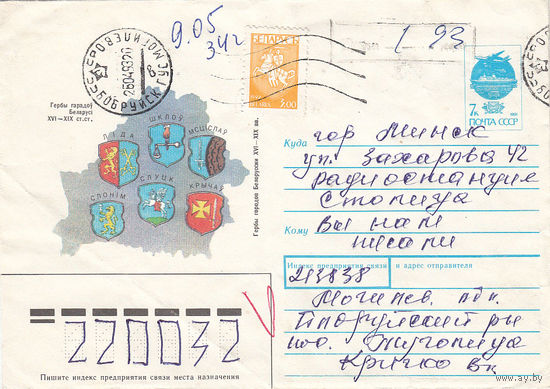 9.05
34г
БОБРУЙСК МОГИЛЕВСКОЙ
26049320
БЕЛАРУСЬ
BELARUS 5.00
1 93
7к
1991
ПОЧТА СССР
Гербы гарадоў
Беларусі
XVI—XIX ст.ст.
ЛІДА
ШКЛОЎ
МСЦІСЛАЎ
СЛОНІМ
СЛУЦК
КРЫЧАЎ
Гербы городов Белоруссии XVI—XIX вв.
Куда
гор Минск
ул. Захарова 42
радиостанция
Столица
Кому
Вы нам
писали
Индекс предприятия связи и адрес отправителя
213838
Могилев.
Кричко
220032
Пишите индекс предприятия связи места назначения
www.ay.by